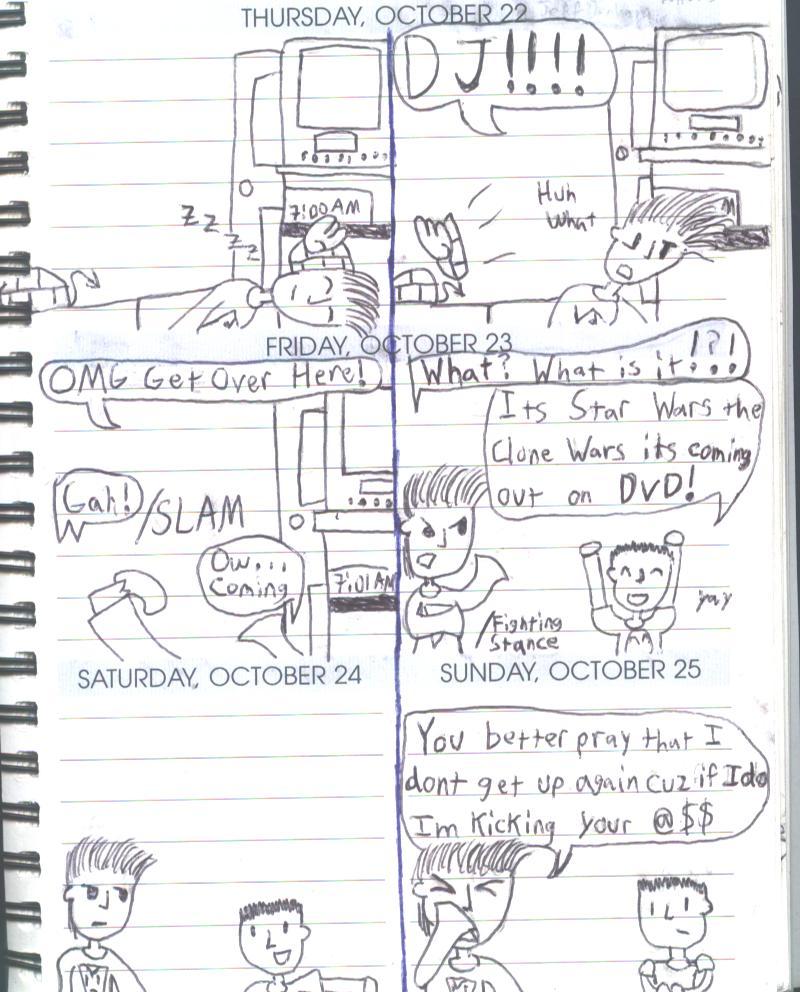 THURSDAY, OCTOBER 22
z z z z
7:00 AM
DJ!!!!
Huh
What
M
FRIDAY, OCTOBER 23
OMG Get Over Here!
Gah!
/SLAM
Ow...
Coming
7:01 AM
What? What is it!?!
Its Star Wars the
Clone Wars its coming
out on DVD!
yay
/Fighting
Stance
SATURDAY, OCTOBER 24
SUNDAY, OCTOBER 25
You better pray that I
dont get up again cuz if I do
Im Kicking your @$$